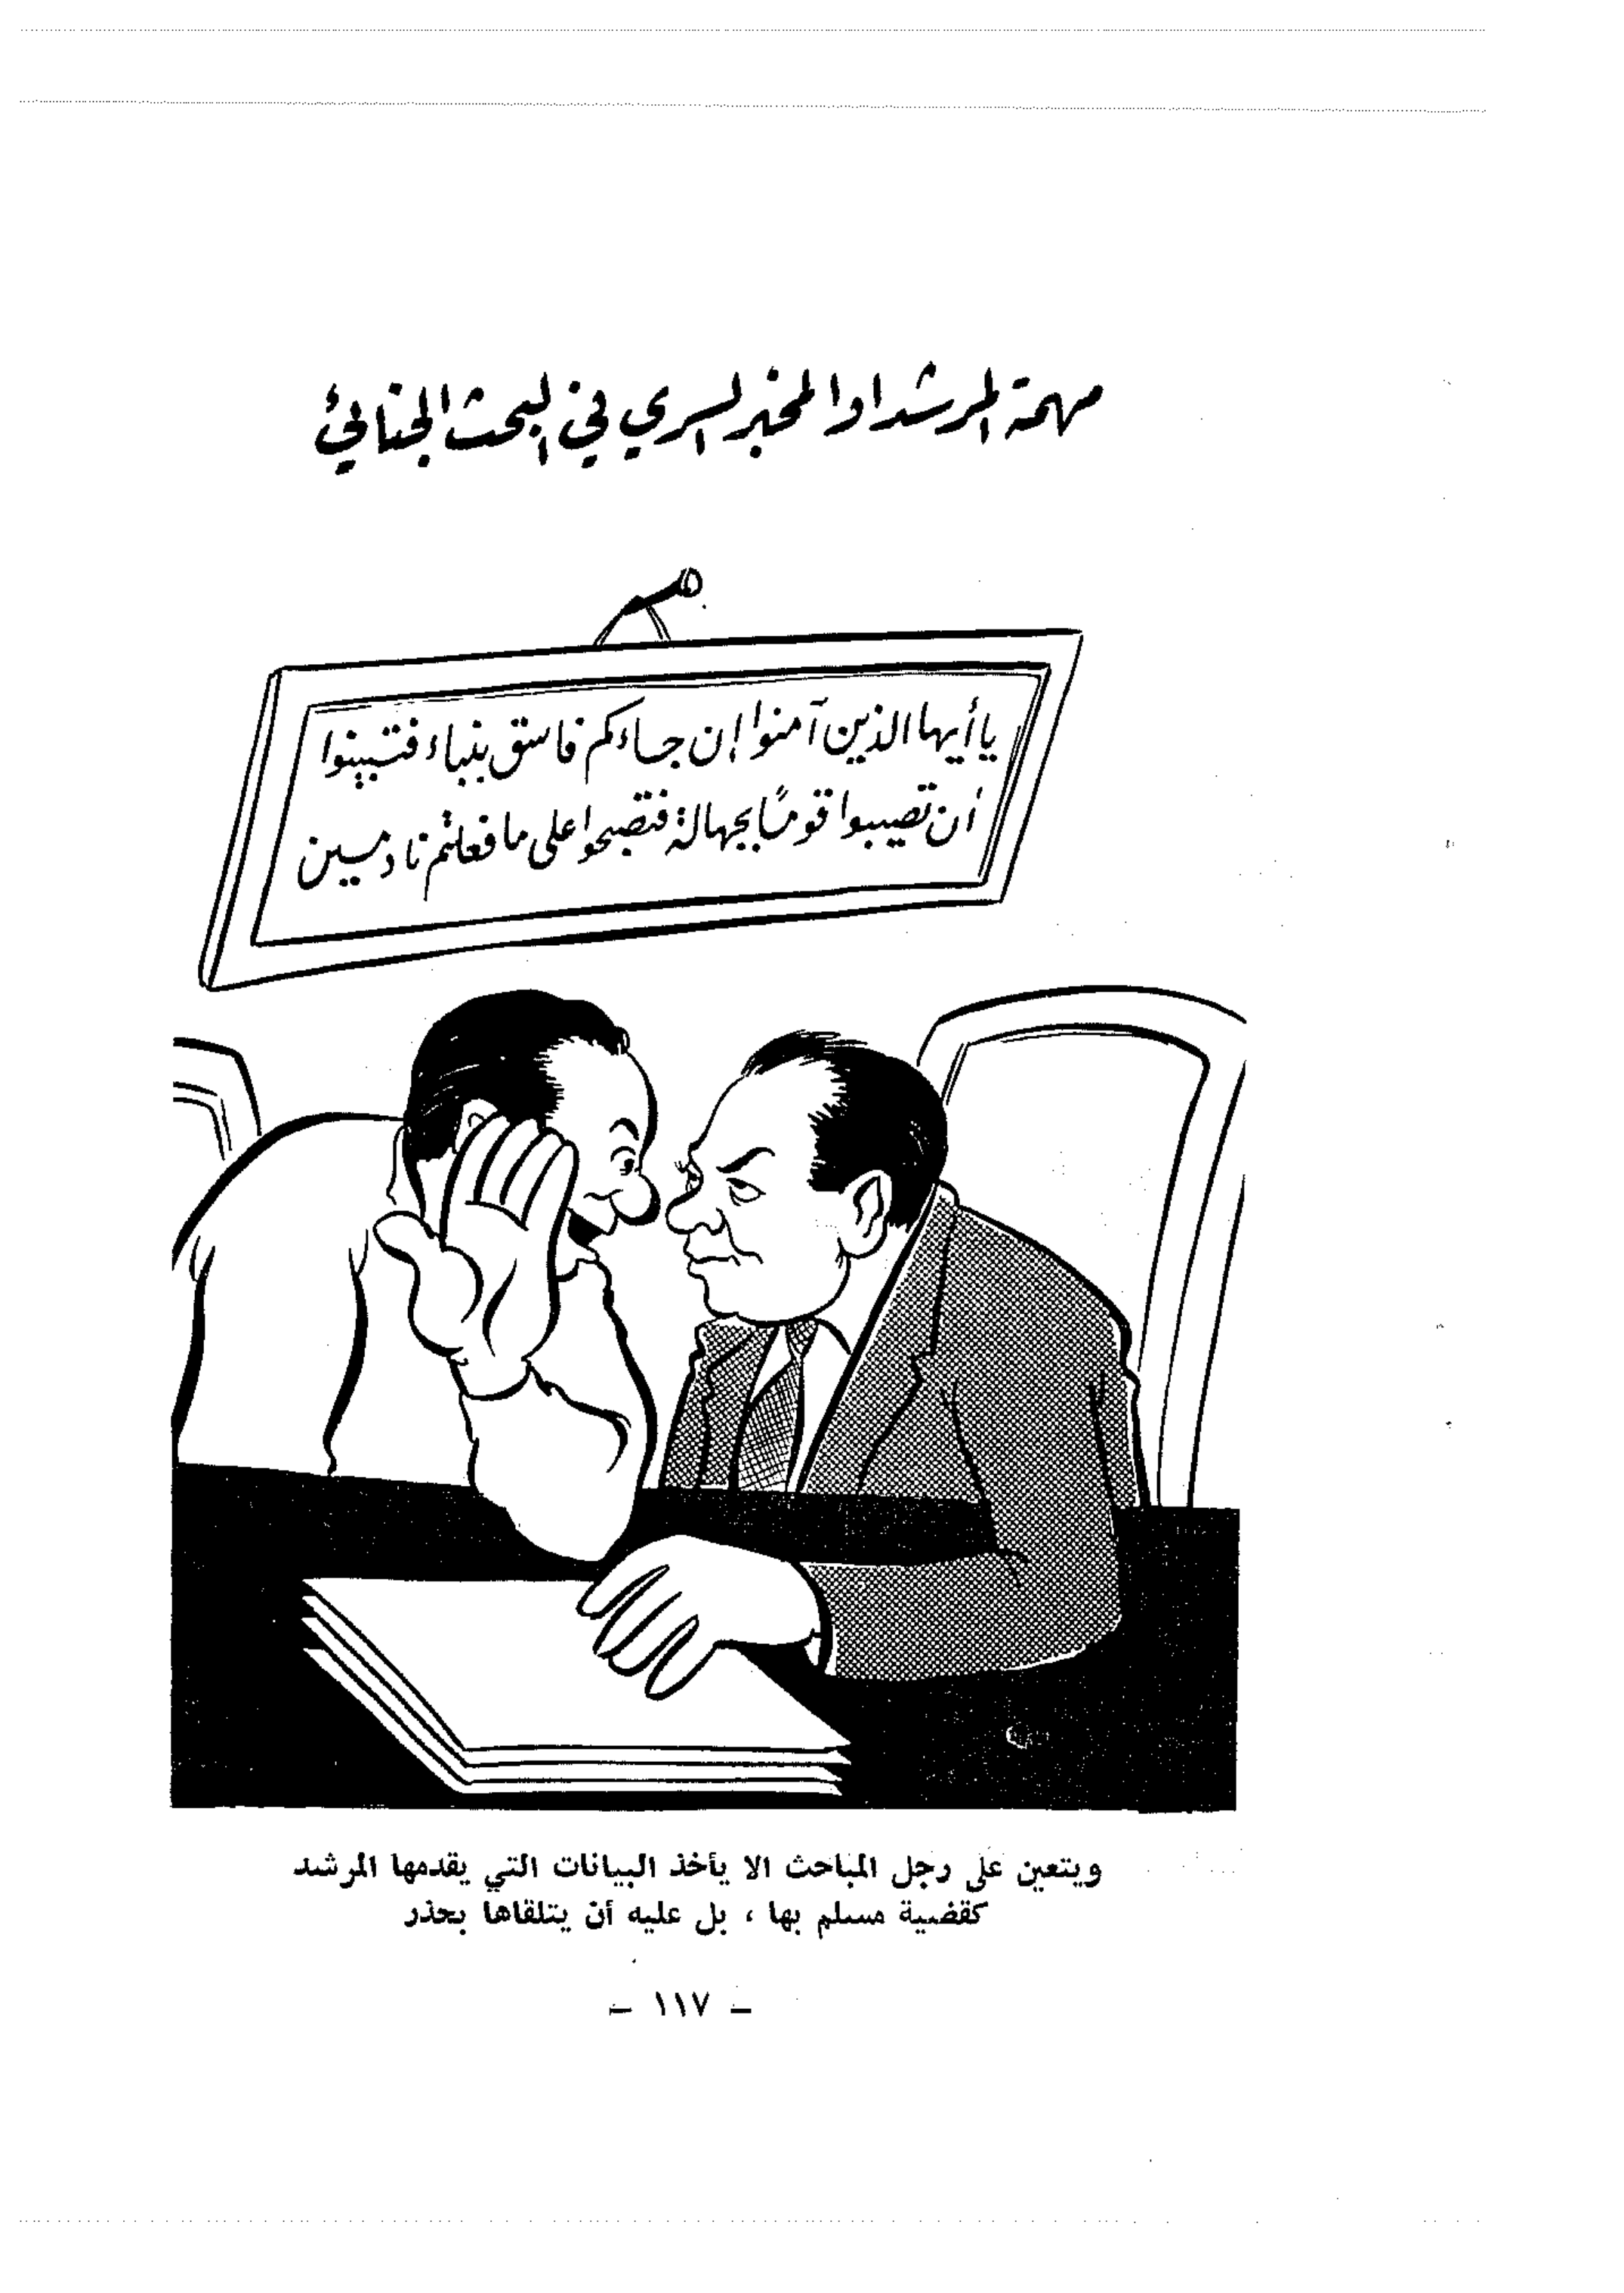 مهمة المرشد او المخبر السري في البحث الجنائي
يا أيها الذين آمنوا إن جاءكم فاسق بنباء فتبينوا
أن تصيبوا قومًا بجهالة فتصبحوا على ما فعلتم نادمين
ويتعين على رجل المباحث الا يأخذ البيانات التي يقدمها المرشد
كقضية مسلم بها ، بل عليه أن يتلقاها بحذر
– ١١٧ –